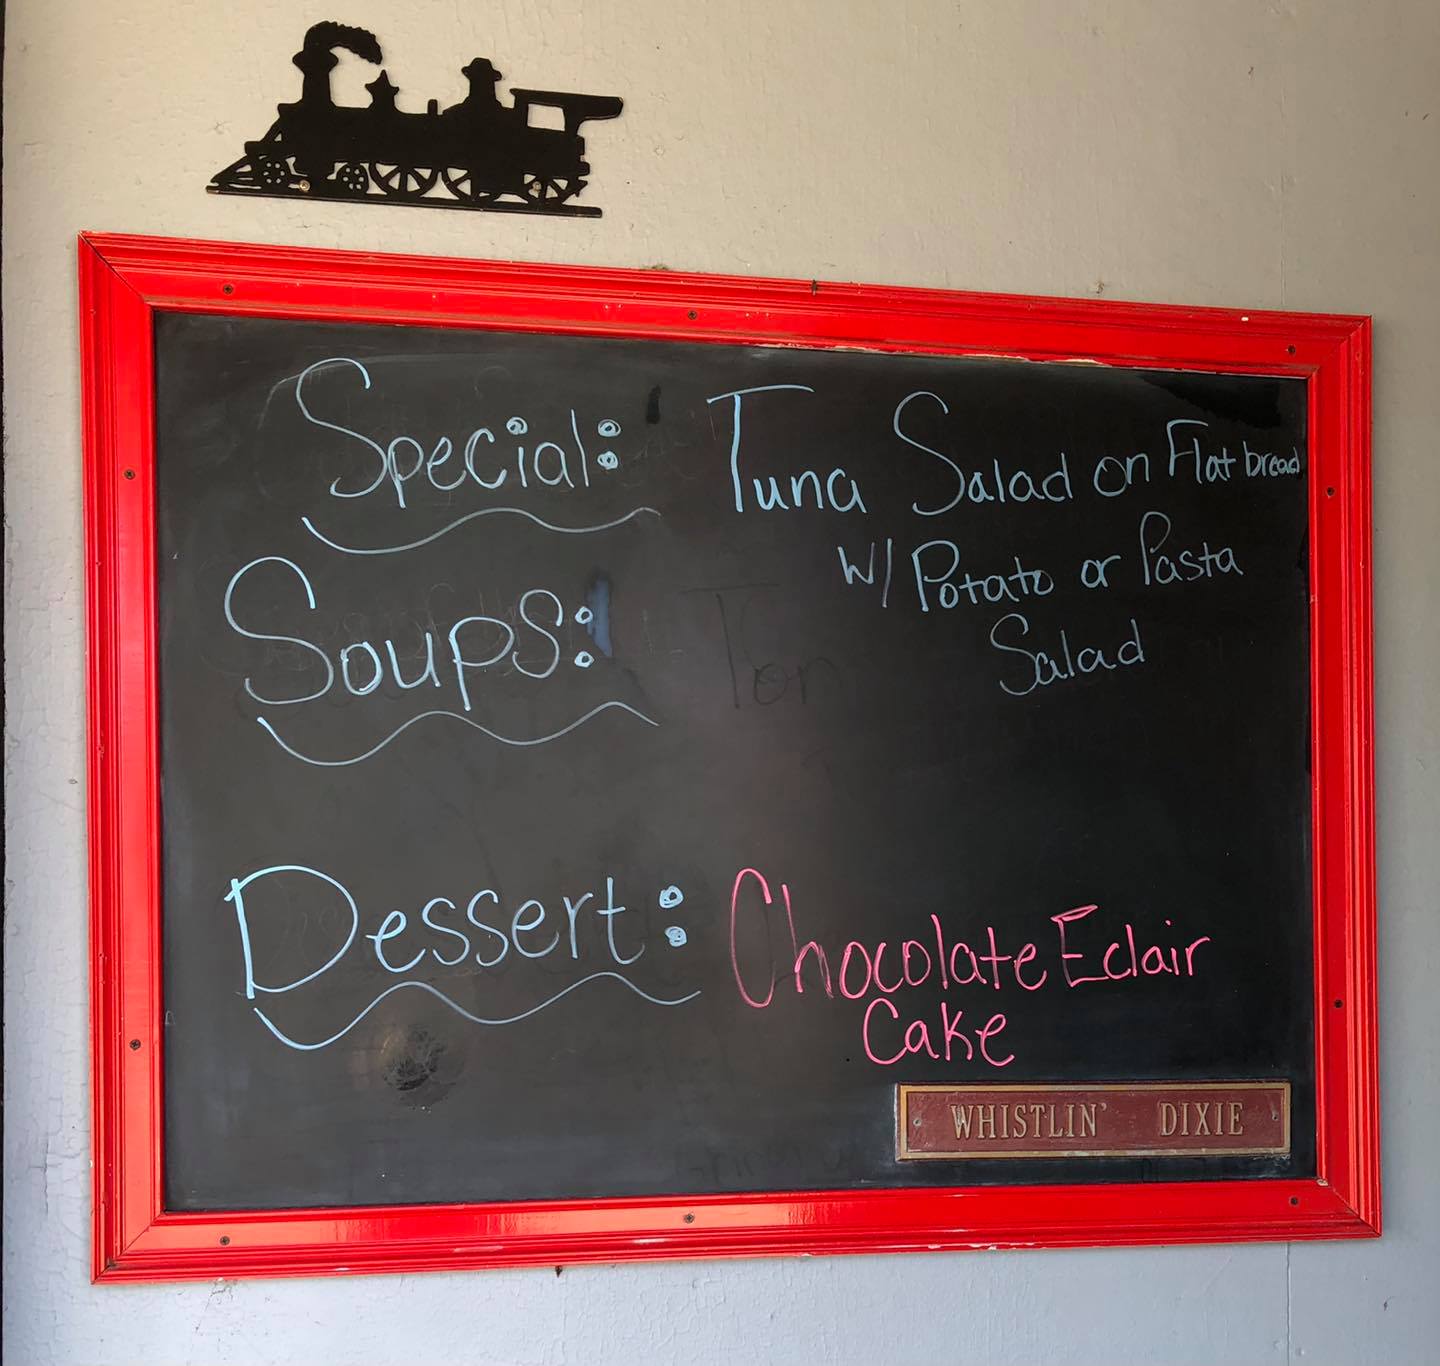 Special: Tuna Salad on Flatbread
W/ Potato or Pasta
Salad
Soups:
Dessert: Chocolate Eclair
Cake
WHISTLIN' DIXIE